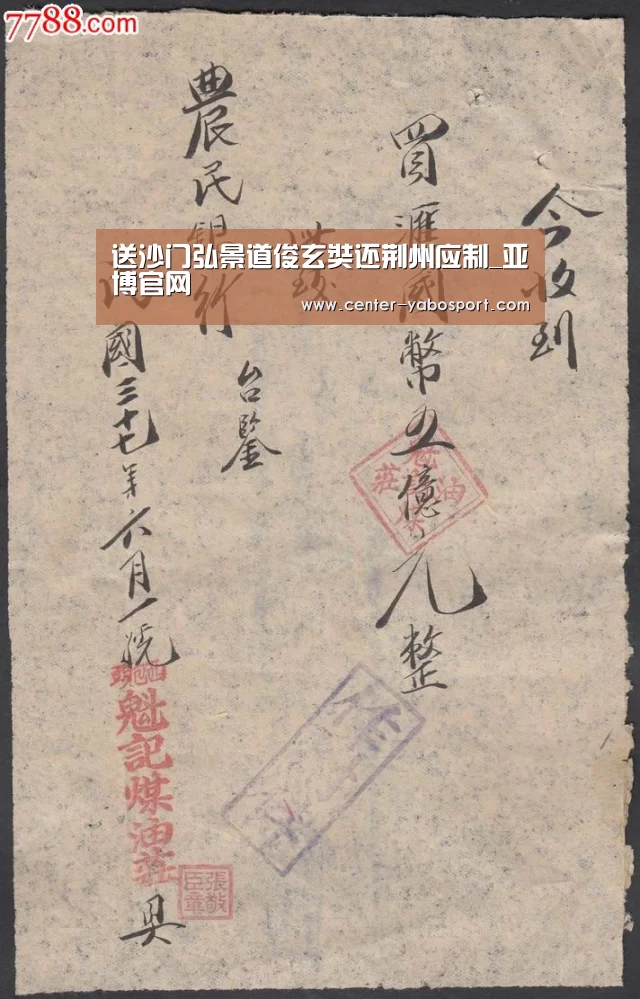 7788.com
今收到
買滙國幣五億元整
此致
農民銀行
台鑒
民國三十七年六月一號
魁記煤油莊
具
張敬臣章
送沙门弘景道俊玄奘还荆州应制_亚
博官网
www.center-yabosport.com